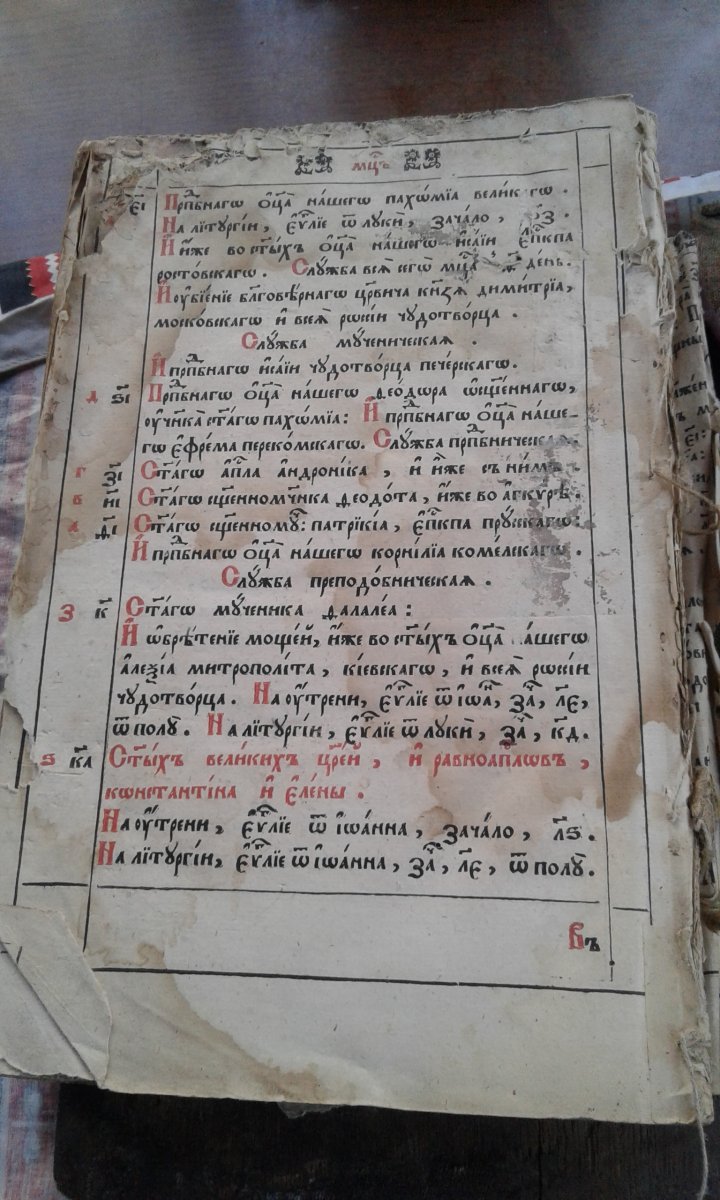 мцⷭ҇ъ
е҃і Прпⷣбнагѡ ѻ҆ц҃а̀ на́шегѡ пахѡ́мїа вели́кагѡ .
На лїтꙋргі́и, є҆ѵⷢ҇лїе ѿ лꙋкѝ, зача́ло,
И҆ и҆́же во ст҃ы́хъ ѻ҆ц҃а̀ на́шегѡ и҆са́їи є҆пⷭ҇кпа
росто́вскагѡ . Слꙋ́жба всѧ̀ сегѡ̀ мцⷭ҇а де́нь.
И҆ ᲂу҆бїе́нїе бл҃гові́рнагѡ цр҃вича кнѧ́зѧ дими́трїа,
моско́вскагѡ и҆ всеѧ̀ рѡссі́и чꙋдотво́рца .
Слꙋ́жба мꙋ́ченическая .
И҆ прпⷣбнагѡ и҆са́їи чꙋдотво́рца пече́рскагѡ.
д ѕ҃і Прпⷣбнагѡ ѻ҆ц҃а̀ на́шегѡ ѳео́дѡра ѡ҆сщ҃е́ннагѡ,
ᲂу҆чн҃ка̀ ст҃а́гѡ пахѡ́мїа: И҆ прпⷣбнагѡ ѻ҆ц҃а̀ на́ше-
гѡ є҆фре́ма переко́мскагѡ. Слꙋ́жба прпⷣбническая.
г з҃і Ст҃а́гѡ а҆пⷭ҇ла а҆ндроні́ка, и҆ и҆̀же съ ни́мъ.
в и҃і Ст҃а́гѡ сщ҃енномч҃нка ѳеодо́та, и҆́же во а҆гкѵ́рѣ.
а ѳ҃і Ст҃а́гѡ сщ҃енномꙋⷱ҇: патрїкі́а, є҆пⷭ҇кпа прꙋ́сскагѡ:
И҆ прпⷣбнагѡ ѻ҆ц҃а̀ на́шегѡ корни́лїа коме́лскагѡ .
Слꙋ́жба преподо́бническая .
З к҃ Ст҃а́гѡ мꙋ́ченика ѳалале́а :
И҆ ѡ҆брѣ́тенїе моще́й, и҆́же во ст҃ы́хъ ѻ҆ц҃а̀ на́шегѡ
а҆леѯі́а митрополі́та, кі́евскагѡ, и҆ всеѧ̀ рѡссі́и
чꙋдотво́рца . На ᲂу҆́трени, є҆ѵⷢ҇лїе ѿ і҆ѡⷩ҇а, заⷱ҇, л҃є,
ѿ полꙋ̀. На лїтꙋргі́и, є҆ѵⷢ҇лїе ѿ лꙋкѝ, заⷱ҇, к҃д.
ѕ к҃а Ст҃ы́хъ вели́кихъ цр҃е́й, и҆ равноа҆пⷭ҇лѡвъ,
кѡнстанті́на и҆ є҆ле́ны .
На ᲂу҆́трени, є҆ѵⷢ҇лїе ѿ і҆ѡа́нна, зача́ло, л҃ѕ.
На лїтꙋргі́и, є҆ѵⷢ҇лїе ѿ і҆ѡа́нна, заⷱ҇, л҃є, ѿ полꙋ̀.
Въ